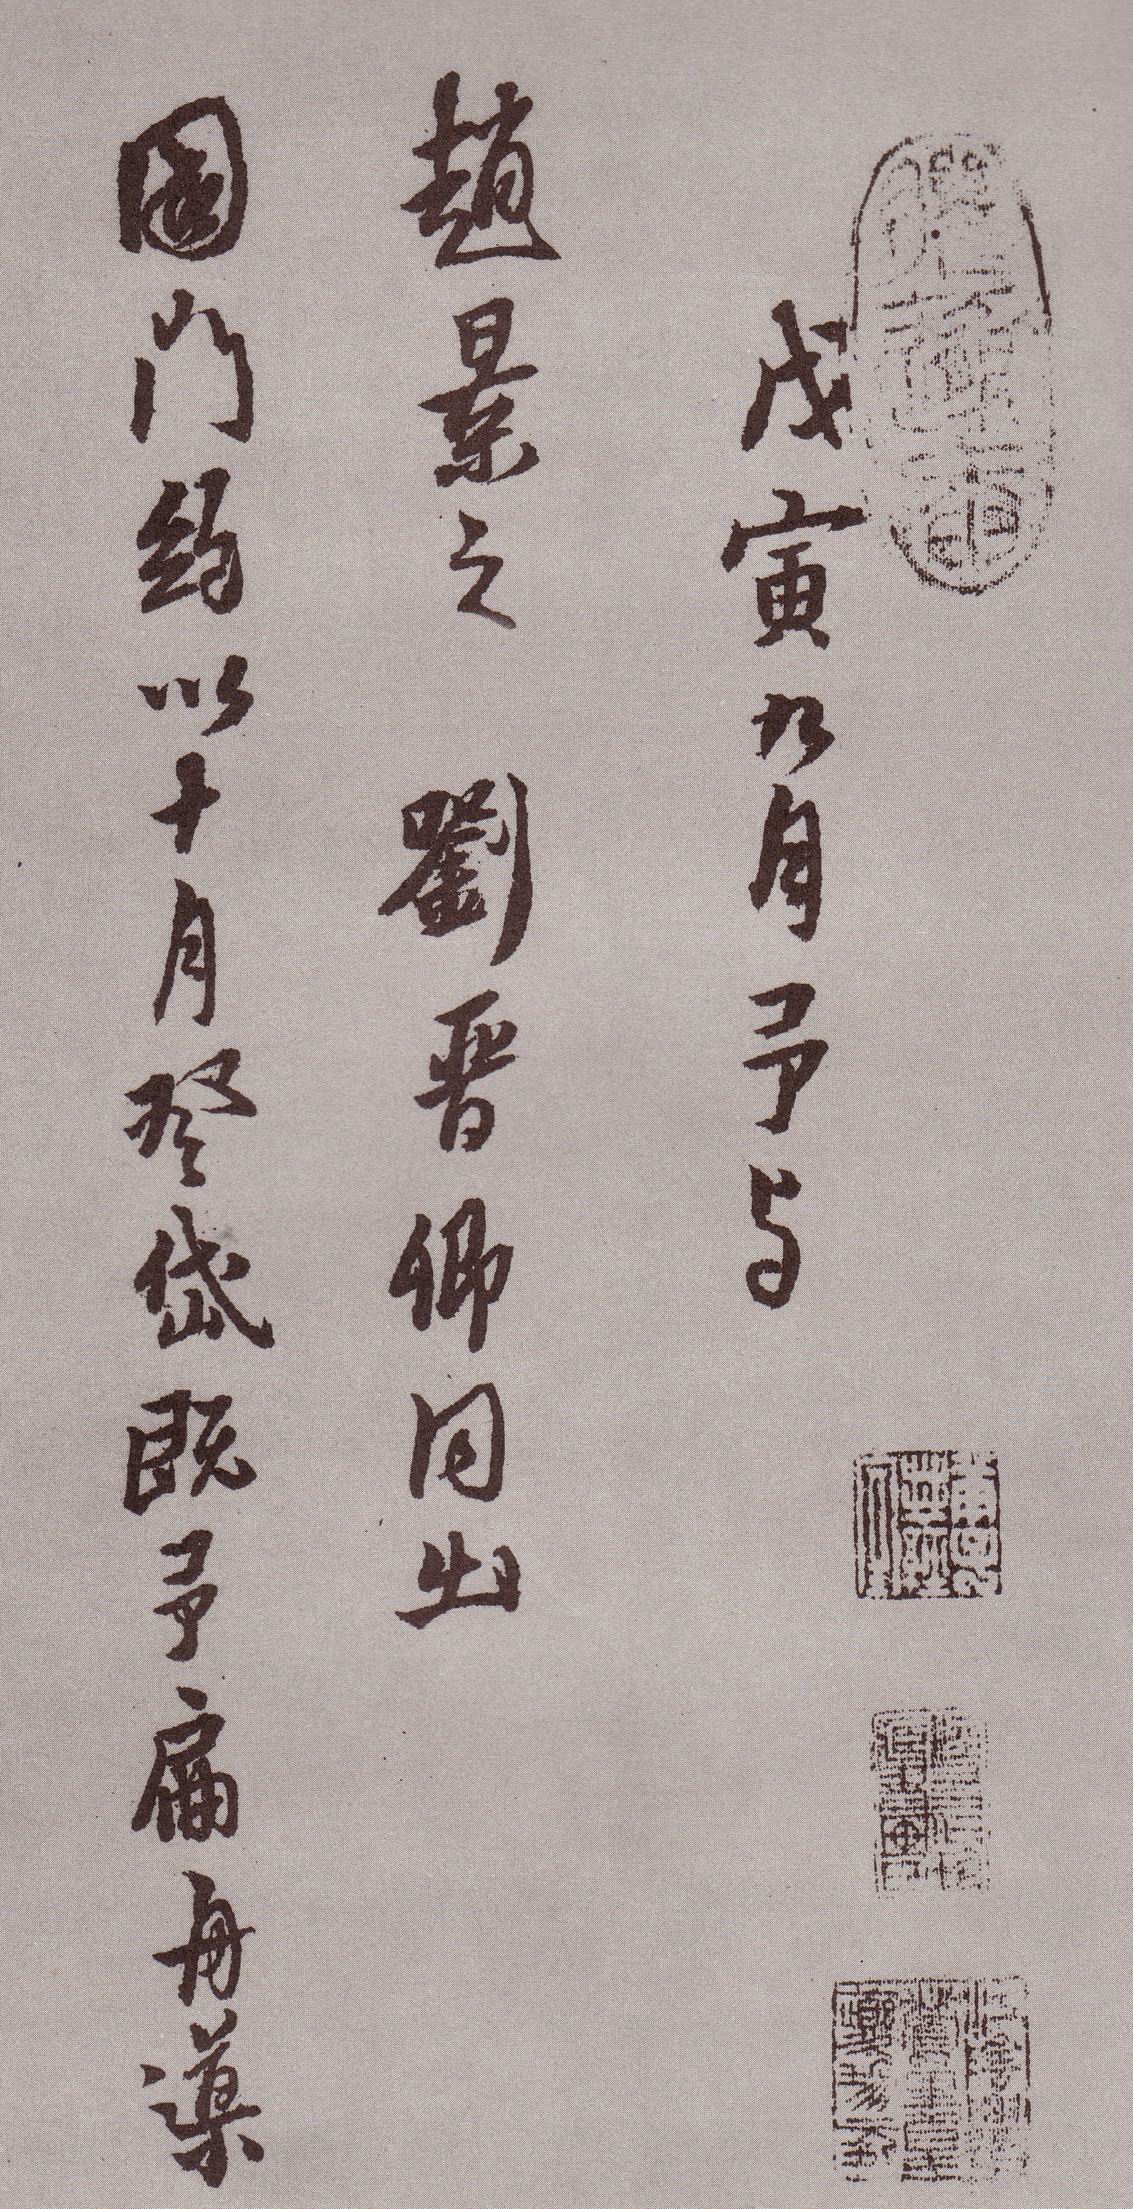 戊寅九月予与
趙景之 劉晉卿同出
國門約以十月登岱既予扁舟渡